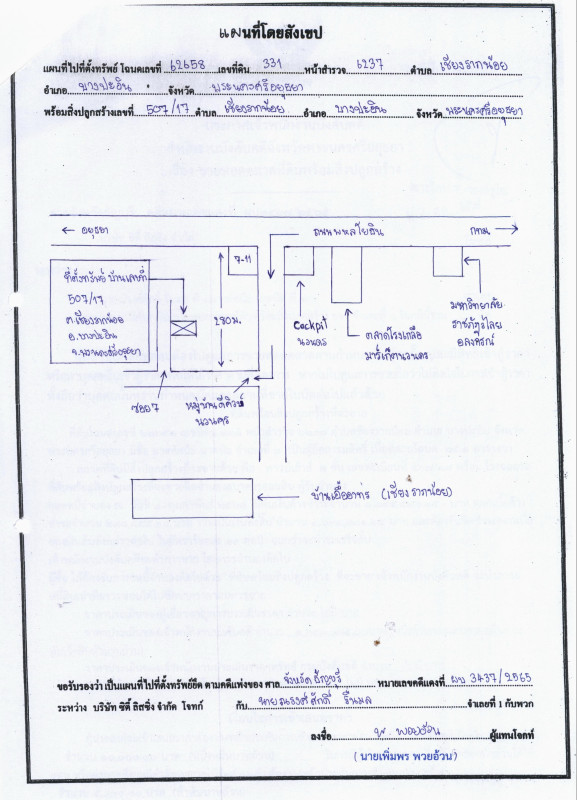 แผนที่โดยสังเขป
แผนที่ไปที่ตั้งทรัพย์ โฉนดเลขที่ 62658 เลขที่ดิน 331 หน้าสำรวจ 6237 ตำบล เชียงรากน้อย
อำเภอ บางปะอิน จังหวัด พระนครศรีอยุธยา
พร้อมสิ่งปลูกสร้างเลขที่ 507/17 ตำบล เชียงรากน้อย อำเภอ บางปะอิน จังหวัด พระนครศรีอยุธยา
← อยุธยา
ถนนพหลโยธิน
กทม. →
7-11
ที่ตั้งทรัพย์ บ้านเลขที่
507/17
ต.เชียงรากน้อย
อ.บางปะอิน
จ.พระนครศรีอยุธยา
230 ม.
Cockpit
นวนคร
ตลาดโรงเกลือ
มาร์เก็ตนวนคร
มหาวิทยาลัย
ราชภัฏวไลย
อลงกรณ์
ซอย 7
หมู่บ้าน
นวนคร
บ้านเอื้ออาทร (เชียงรากน้อย)
ขอรับรองว่า เป็นแผนที่ไปที่ตั้งทรัพย์ยึด ตามคดีแพ่งของ ศาล จังหวัดธัญบุรี หมายเลขคดีแดงที่ ผบ 3437/2565
ระหว่าง บริษัท ซิตี้ ลิสซิ่ง จำกัด โจทก์ กับ จำเลยที่ 1 กับพวก
ลงชื่อ พ. พวยอ้วน ผู้แทนโจทก์
(นายเพิ่มพร พวยอ้วน)